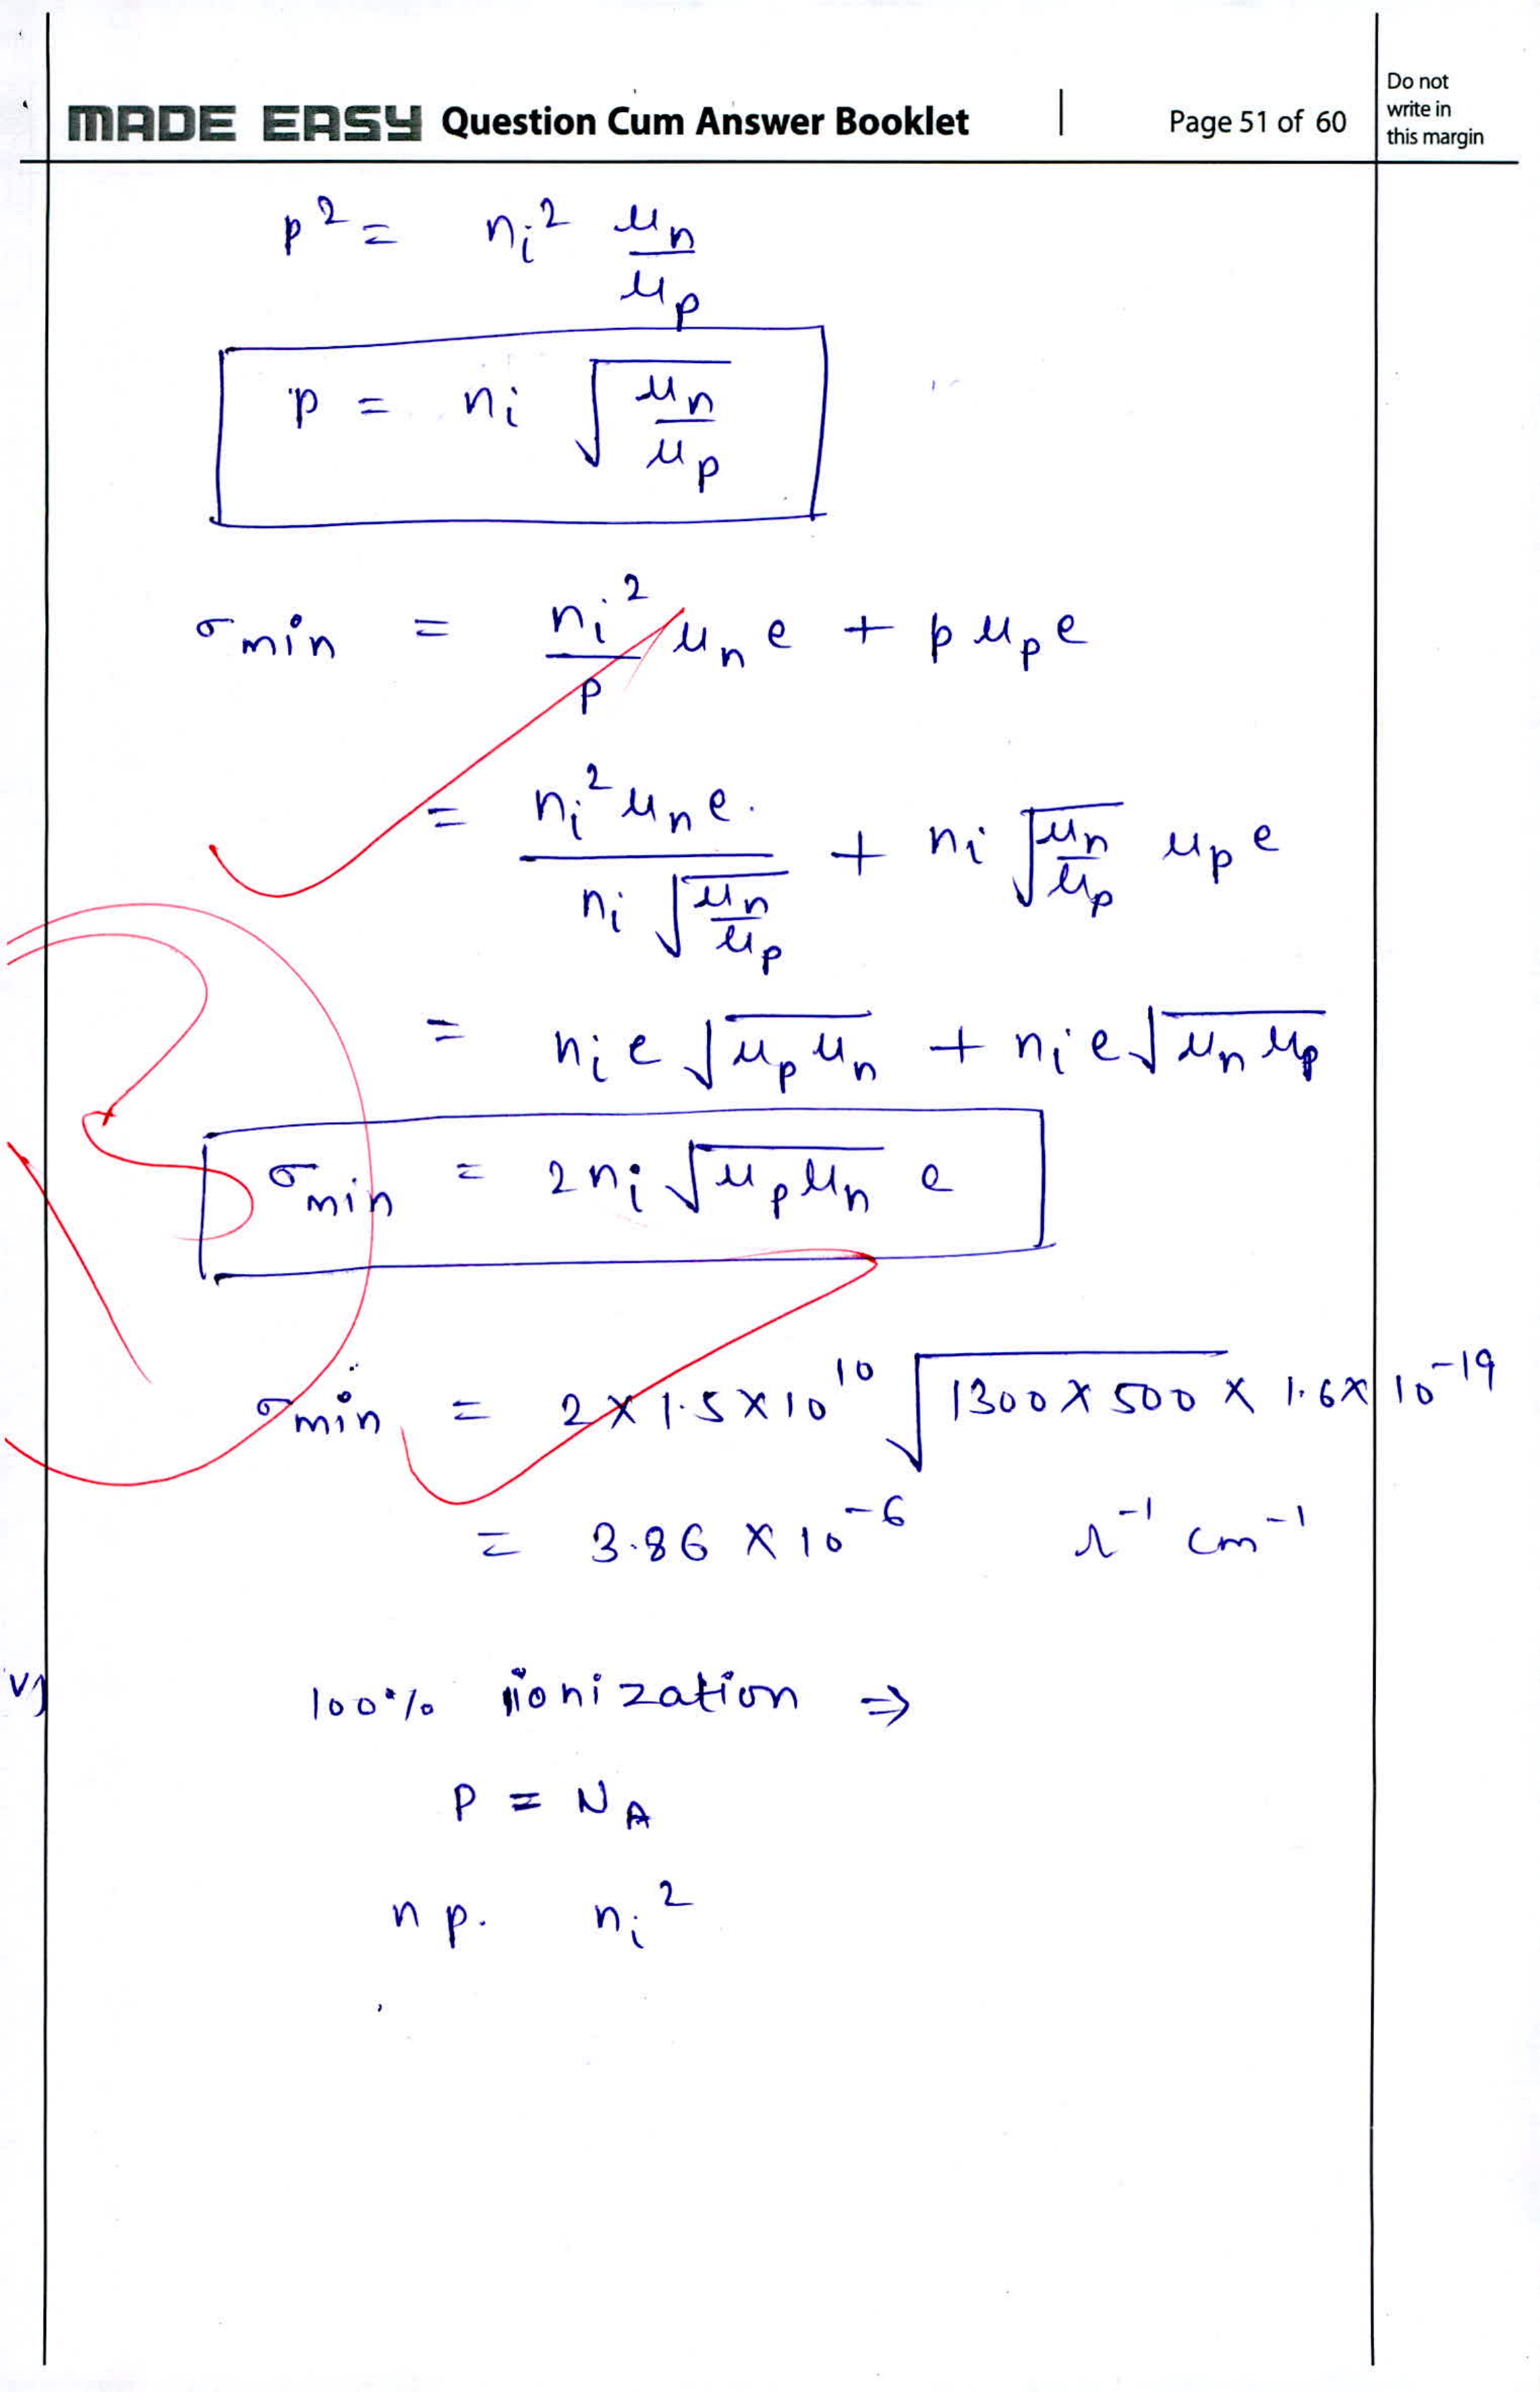 MADE EASY Question Cum Answer Booklet | Page 51 of 60
Do not
write in
this margin
p² = nᵢ² μₙ/μₚ
p = nᵢ √(μₙ/μₚ)
σmin = nᵢ²/p μₙ e + p μₚ e
= nᵢ² μₙ e. / nᵢ √(μₙ/μₚ) + nᵢ √(μₙ/μₚ) μₚ e
= nᵢ e √(μₚ μₙ) + nᵢ e √(μₙ μₚ)
σmin = 2 nᵢ √(μₚ μₙ) e
σmin = 2 × 1.5 × 10¹⁰ √(1300 × 500) × 1.6 × 10⁻¹⁹
= 3.86 × 10⁻⁶ Ω⁻¹ cm⁻¹
v)
100% ionization ⇒
P = N_A
n p. nᵢ²